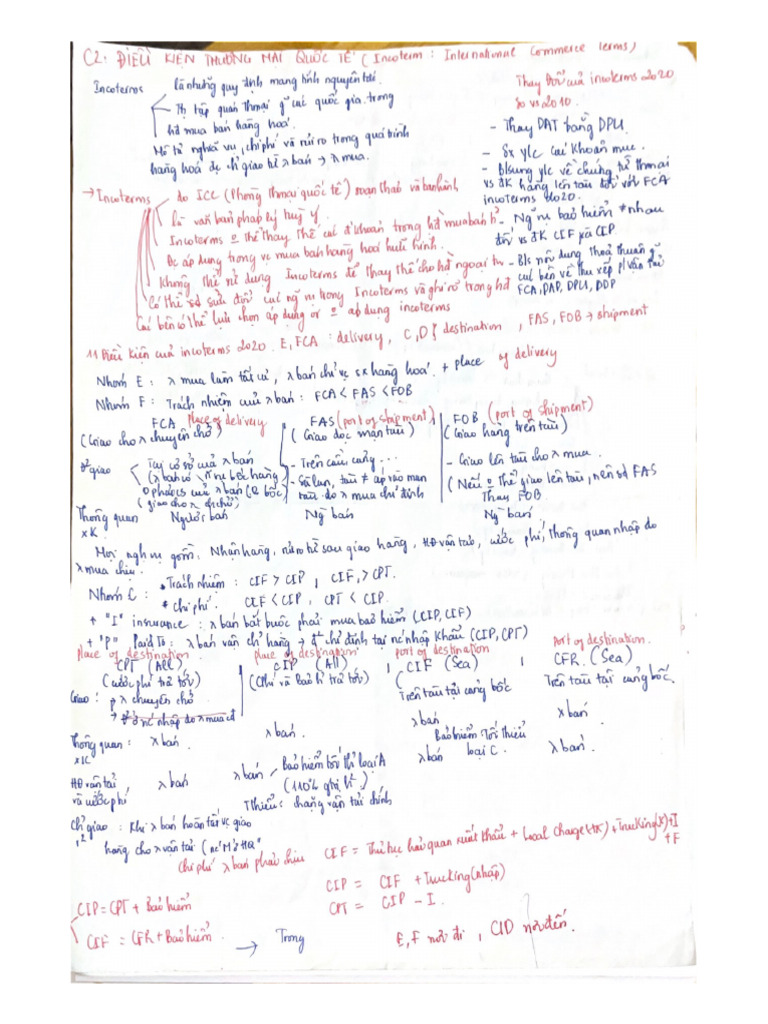 C2: ĐIỀU KIỆN THƯƠNG MẠI QUỐC TẾ (Incoterm: International Commerce terms)
Incoterms là những quy định mang tính nguyên tắc
Thị tập quán thmại g~ các quốc gia trong
hđ mua bán hàng hoá.
Mô tả nghĩa vụ, chi phí và rủi ro trong quá trình
hàng hoá đc ch giao từ λ bán → λ mua.
Thay đổi của incoterms 2020
so vs 2010.
- Thay DAT bằng DPU.
- Sx ylc các khoản mục.
- Bsung ylc về chứng từ thmai
vs đk hàng lên tàu đối với FCA
incoterms 2020.
- Ng~ vụ bảo hiểm # nhau
đối vs đk CIF và CIP.
- Bs nội dung thoả thuận g~
các bên về thu xếp p/ vận tải
FCA, DAP, DPU, DDP
→ Incoterms do ICC (Phòng thmại quốc tế) soạn thảo và ban hành
là văn bản pháp lý tuỳ ý.
Incoterms o thể thay thế các đ khoản trong hđ mua bán h²
Đc áp dụng trong vc mua bán hàng hoá hữu hình.
Không thể sử dụng Incoterms để thay thế cho hđ ngoại th
Có thể sđ sửa đổi các ng~ vụ trong Incoterms và ghi rõ trong hđ
Các bên có thể lựa chọn áp dụng or o áp dụng incoterms
11 Điều kiện của incoterms 2020. E, FCA: delivery, C, D: destination, FAS, FOB → shipment
Nhóm E: λ mua làm tất cả, λ bán chỉ vc sx hàng hoá + place of delivery
Nhóm F: Trách nhiệm của λ bán: FCA < FAS < FOB
FCA Place of delivery
FAS (port of shipment)
FOB (port of shipment)
(Giao cho λ chuyên chở)
(Giao dọc mạn tàu)
(Giao hàng trên tàu)
đ² giao
Tại cơ sở của λ bán
(λ bán có n~ vụ bốc hàng)
O phải cs của λ bán (O bốc)
(giao cho λ ch chở)
- Trên cầu cảng...
- Sà lan, tàu # áp vào mạn
tàu do λ mua chỉ định
- Giao lên tàu cho λ mua.
(Nếu o thể giao lên tàu, nên sd FAS
Thay FOB
Thông quan
XK
Người bán
Ng bán
Ng bán
Mọi ngh vụ gồm: Nhận hàng, rủi ro từ sau giao hàng, HĐ vận tải, cước phí, thông quan nhập do
λ mua chịu.
Nhóm C:
* Trách nhiệm: CIF > CIP, CIF > CPT.
* Chi phí. CIF < CIP, CPT < CIP.
+ "I" insurance: λ bán bắt buộc phải mua bảo hiểm (CIP, CIF)
+ "P" Paid To: λ bán vận ch hàng → đ² chỉ định tại nc nhập khẩu (CIP, CPT)
Place of destination
place of destination
port of destination
Port of destination.
CPT (All)
CIP (All)
CIF (Sea)
CFR (Sea)
(cước phí trả tới)
(Cphí và Bảo h trả tới)
Trên tàu tại cảng bốc
Trên tàu tại cảng bốc.
Giao: p λ chuyên chở
Thông quan: λ bán
XK
λ bán.
λ bán
λ bán
HĐ vận tải
và cước phí
λ bán
λ bán
Bảo hiểm tối th loại A
(110% gtrị h²)
Thiểu: chặng vận tải chính
λ bán
Bảo hiểm Tối thiểu
loại C.
λ bán.
Ch giao: Khi λ bán hoàn tất vc giao
r²
hàng cho λ vận tải (nc Mở HQ)
Chi phí λ bán phải chịu
CIF = Thủ tục hải quan xuất khẩu + Local Charge (XK) + Trucking (X) + I
+ F
CIP = CIF + Trucking (nhập)
CPT = CIP - I.
CIP = CPT + Bảo hiểm
CIF = CFR + Bảo hiểm.
→ Trong
E, F nơi đi, C/D nơi đến.